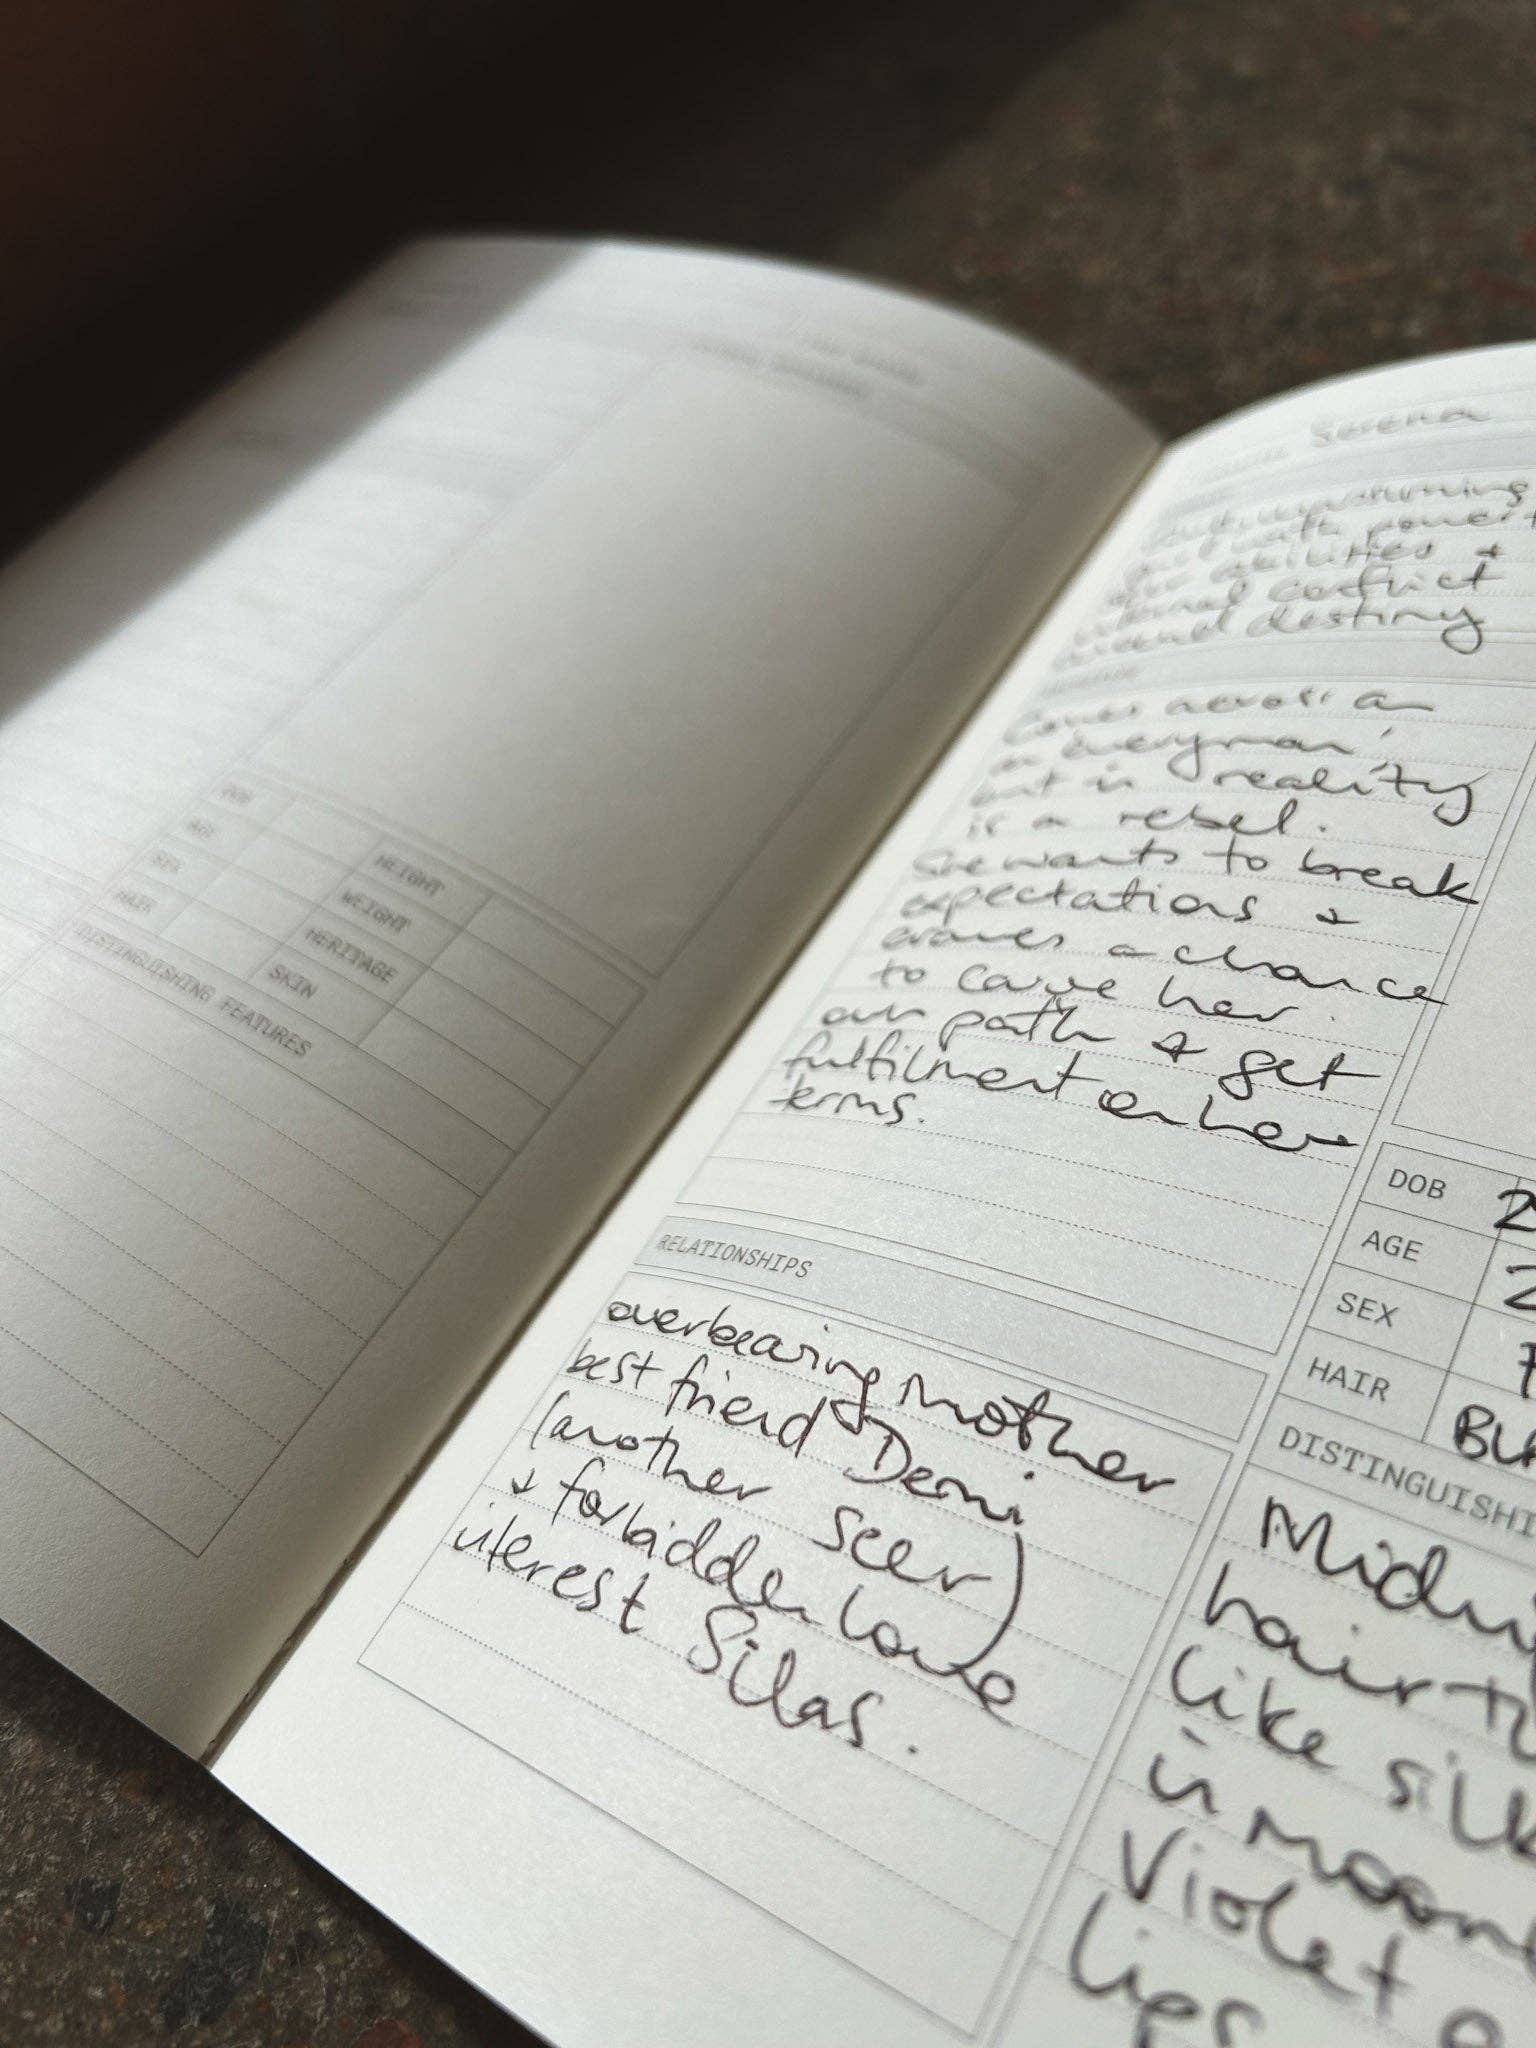 DOB
AGE
SEX
HAIR
HEIGHT
WEIGHT
HERITAGE
SKIN
DISTINGUISHING FEATURES
Serena
with power
abilities +
internal conflict
around destiny
Comes across as
an 'everyman',
but in reality
is a rebel.
She wants to break
expectations &
craves a chance
to carve her
own path & get
fulfilment on her
terms.
RELATIONSHIPS
overbearing mother
best friend Demi
(another seer)
& forbidden love
interest Silas.
DOB 2
AGE 2
SEX F
HAIR
DISTINGUISHI
hair
like silk
in moon
Violet
lips